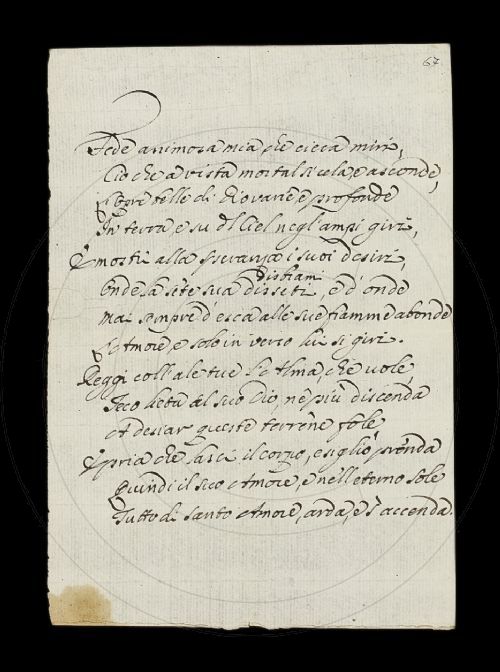 67.
Fede animosa mia che cieca miri,
Ciò che a vista mortal si cela, e asconde,
E l'opre belle di Dio varie e profonde
In terra, e su del Ciel negl'ampi giri,
E mostri alla speranza i suoi desiri,
disbrami
Onde la sete sua disseti, e d'onde
mai sempre d'esca alle sue fiamme abonde
L'Amore, e solo in verso lui si giri.
Reggi coll'ale tue l'Alma, che vole,
Teco lieta al suo Dio, ne più discenda
A desiar queste terrene fole
E pria che lasci il corpo, esiglio prenda
Quindi il suo Amore, e nell'eterno Sole
Tutto di santo Amore, arda, e s'accenda.